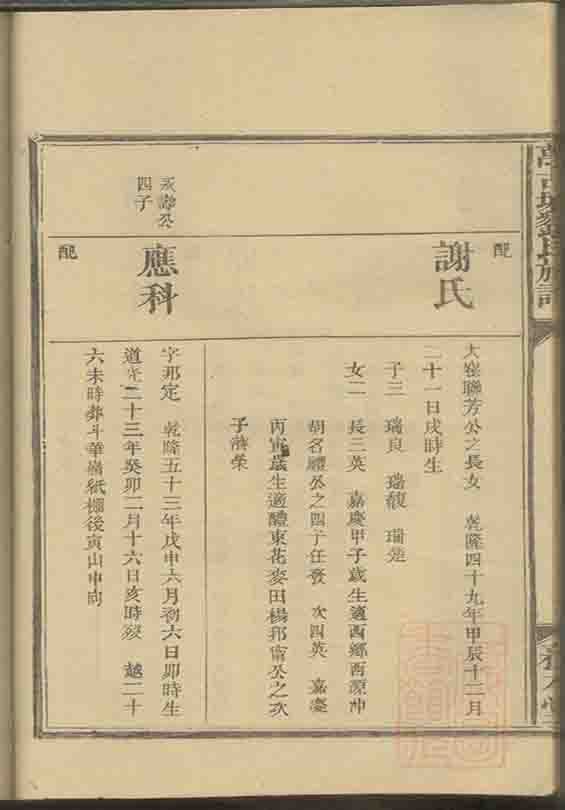 配
謝氏
大窑聯芳公之長女 乾隆四十九年甲辰十二月
二十一日戌時生
子三 瑞良 瑞馥 瑞楚
女二 長三英 嘉慶甲子歲生適西鄉西源冲
胡名禮公之四子任發 次四英 嘉慶
丙寅歲生適醴東花麥田楊邦甯公之次
子濟榮
公
四子
應科
字邪定 乾隆五十三年戊申六月初六日卯時生
道光二十三年癸卯二月十六日亥時歿 越二十
六未時葬斗華嶺紙棚後寅山申向
配